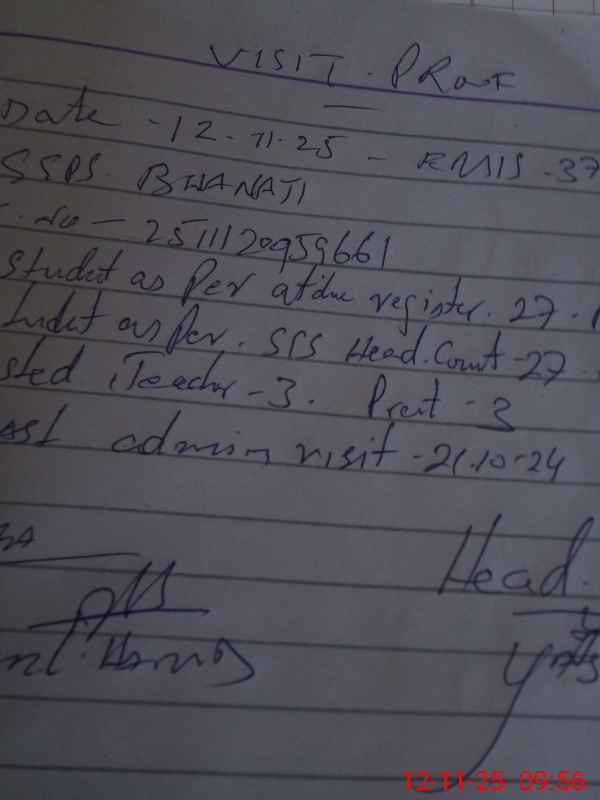 VISIT. PRooF
Date - 12-11-25 - EMIS - 37
SSPS. BHANATI
No - 2511120959661
Studet as Per atdue register. 27.
tudet as Per. SIS Head.Count - 27
sted Teacher - 3. Preat - 3
ast admin visit - 21.10-24
Head.
12-11-25 09:56